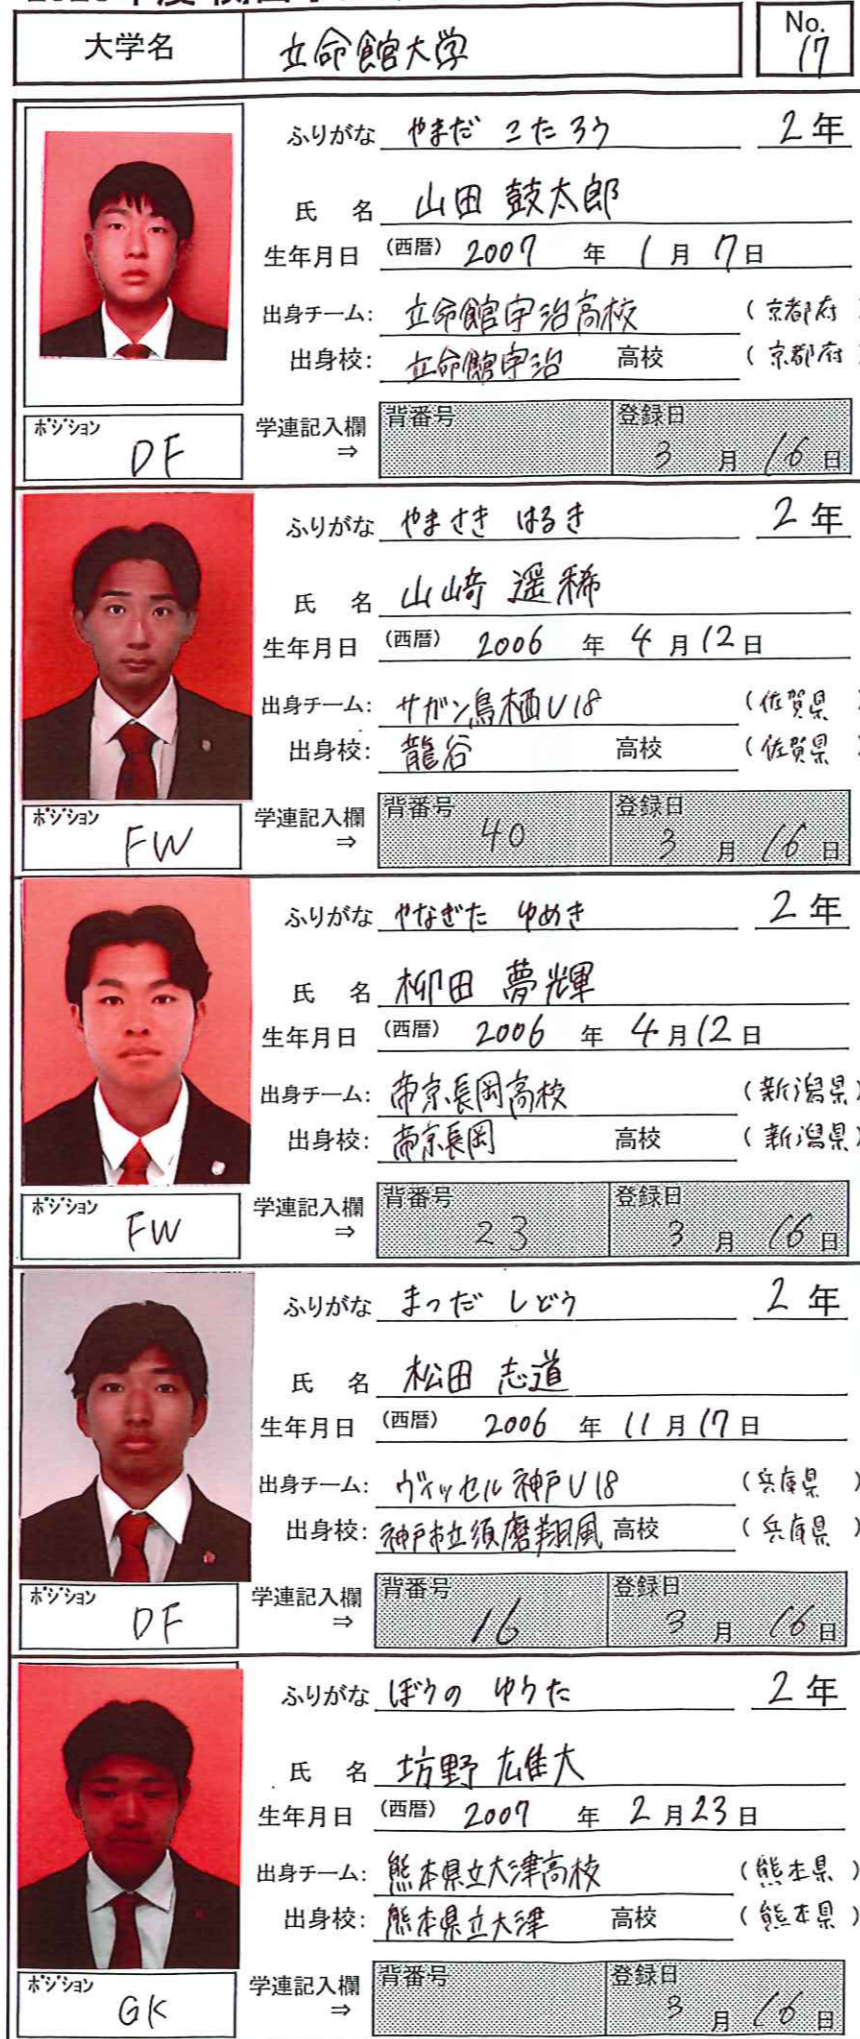 大学名 立命館大学 No. 17
ふりがな やまだ こたろう 2年
氏 名 山田 鼓太郎
生年月日 (西暦) 2007 年 1月 7日
出身チーム: 立命館宇治高校 (京都府)
出身校: 立命館宇治 高校 (京都府)
ポジション DF 学連記入欄⇒ 背番号 登録日 3月 16日
ふりがな やまさき はるき 2年
氏 名 山﨑 遥稀
生年月日 (西暦) 2006 年 4月 12日
出身チーム: サガン鳥栖U18 (佐賀県)
出身校: 龍谷 高校 (佐賀県)
ポジション FW 学連記入欄⇒ 背番号 40 登録日 3月 16日
ふりがな やなぎた ゆめき 2年
氏 名 柳田 夢輝
生年月日 (西暦) 2006 年 4月 12日
出身チーム: 帝京長岡高校 (新潟県)
出身校: 帝京長岡 高校 (新潟県)
ポジション FW 学連記入欄⇒ 背番号 23 登録日 3月 16日
ふりがな まつだ しどう 2年
氏 名 松田 志道
生年月日 (西暦) 2006 年 11月 17日
出身チーム: ヴィッセル神戸U18 (兵庫県)
出身校: 神戸市立須磨翔風 高校 (兵庫県)
ポジション DF 学連記入欄⇒ 背番号 16 登録日 3月 16日
ふりがな ぼうの ゆうた 2年
氏 名 坊野 雄大
生年月日 (西暦) 2007 年 2月 23日
出身チーム: 熊本県立大津高校 (熊本県)
出身校: 熊本県立大津 高校 (熊本県)
ポジション GK 学連記入欄⇒ 背番号 登録日 3月 16日